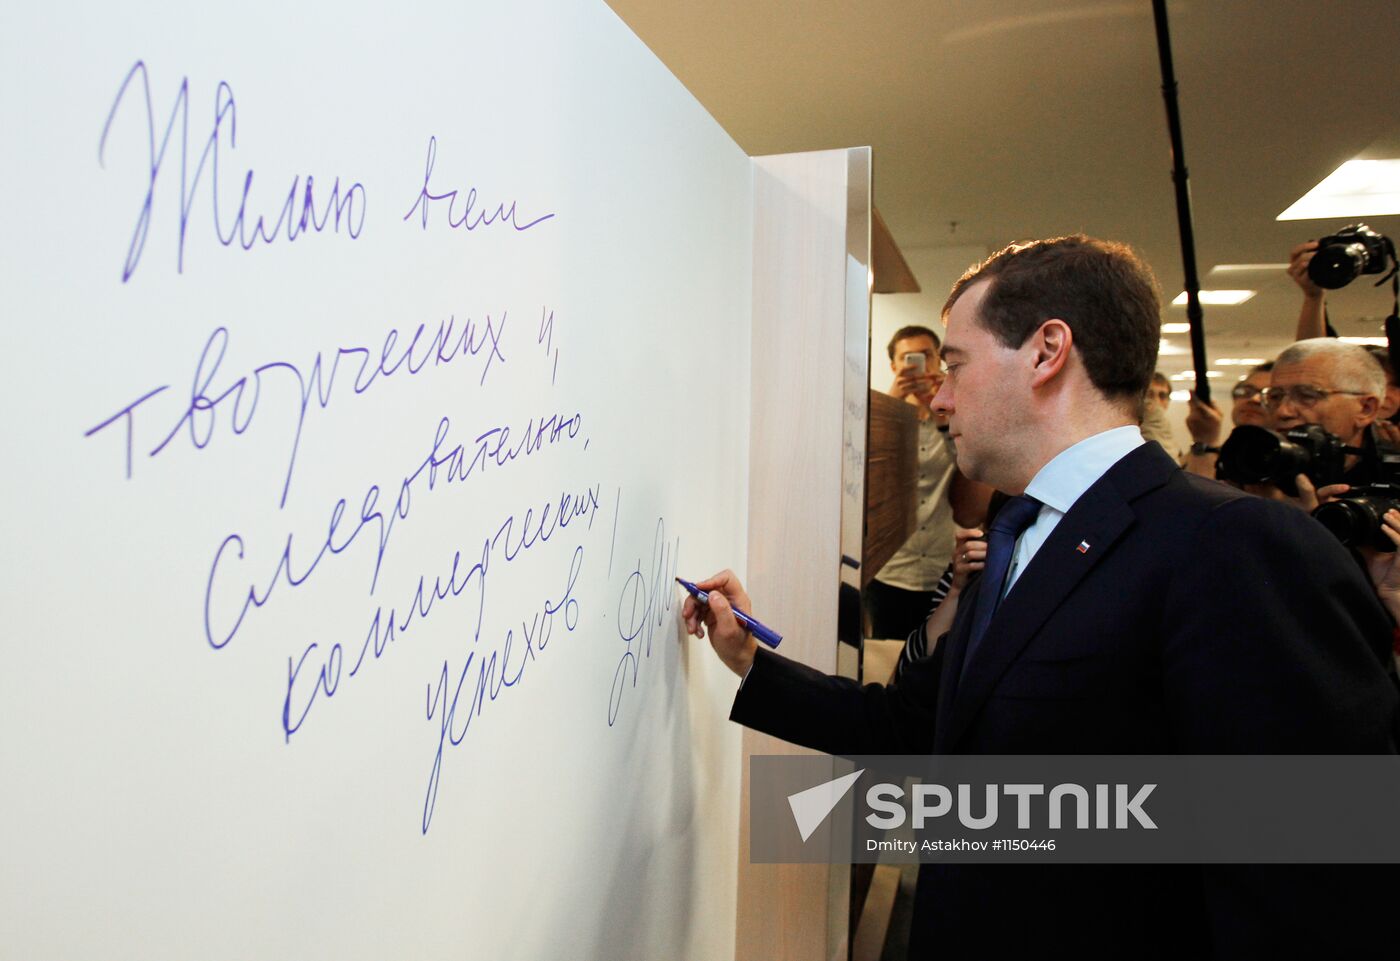 Желаю всем
творческих и,
следовательно,
коммерческих
успехов!
SPUTNIK
Dmitry Astakhov #1150446